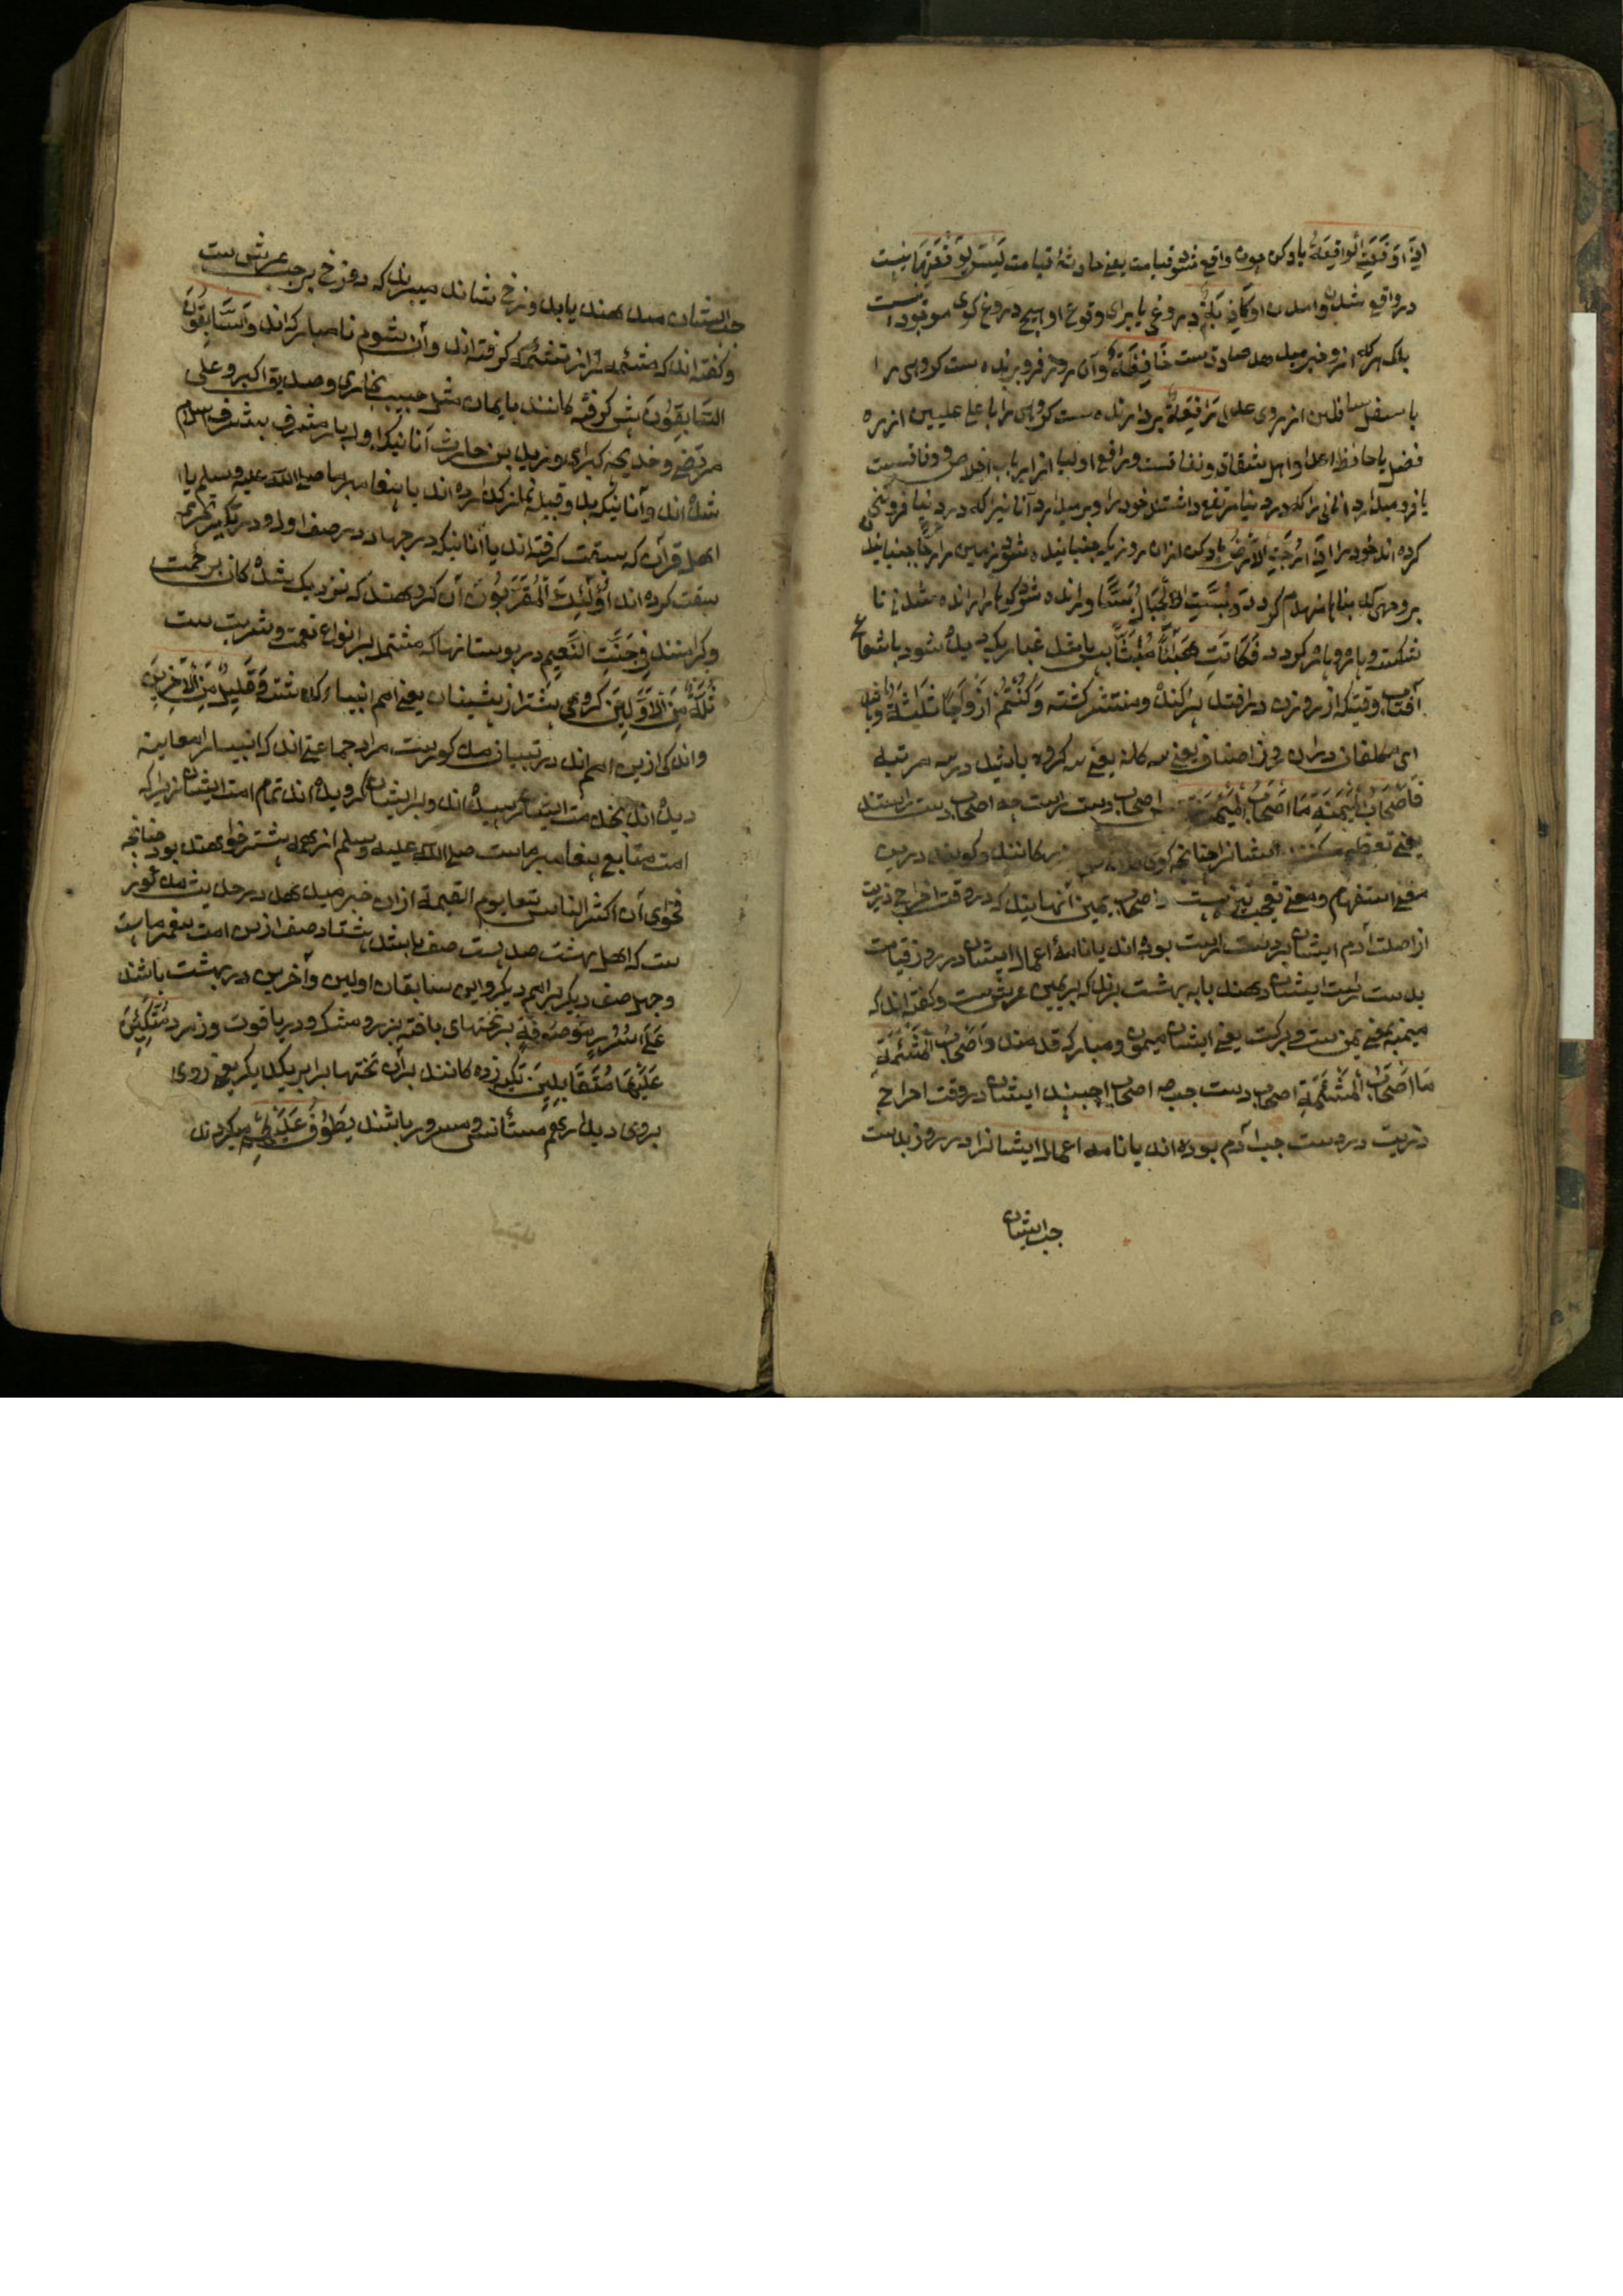 اِذَا وَقَعَتِ الْوَاقِعَةُ یاد کن چون واقع شود قیامت یعنی حادثهٔ قیامت لَیْسَ لِوَقْعَتِهَا نیست
در واقع شدن وامدن او کَاذِبَةٌ دروغی یا برای وقوع او هیچ دروغ کوی موجود نیست
بلک هر که ازو خبر میدهد صادقست خَافِضَةٌ وآن روز فروبرنده ست کروهی را
باسفل سافلین از روی عدل رَافِعَةٌ بردارنده ست کروهی را باعلی علیین از ره
فضل یا حافظ اعدا واهل شقاق ونفاقست ورافع اولیا از ارباب اخلاص ووفاقست
یا فرو میدارد انانی را که در دنیا مرتفع داشتند خود را وبرمیدارد آنانیرا که در دنیا فروتنی
کرده اند خود را اِذَا رُجَّتِ الْاَرْضُ یاد کن ازان روزیکه جنبانیده شود زمین رَجًّا جنبانیدنی
بروجهی که بناها منهدم کردد وَبُسَّتِ الْجِبَالُ بَسًّا ورانده شود کوهها رانده شدنی تا
شکست وپاره پاره کردد فَکَانَتْ هَبَآءً مُنْبَثًّا پس باشد غبار یکه دیده شود باشعاع
آفتاب وقتیکه از روزن درافتد پراکنده ومنتشر کشته وَکُنْتُمْ اَزْوَاجًا ثَلٰثَةً وباشید
ای مکلفان دران روز اصناف یعنی سه کانه یعنی سه کروه باشید در سه مرتبه
فَاَصْحَابُ الْمَیْمَنَةِ مَا اَصْحَابُ الْمَیْمَنَةِ پس اصحاب دست راست چه اصحاب دست راستند
یعنی تعظیم میکند ایشانرا چنانچه کوی زید بزرکانند وکویند درین
معنی استفهام ومعنی تعجب نیز هست واصحاب یمین آنهایند که در وقت اخراج ذریت
از اصلت آدم ایشان بر دست راست بوده اند یا نامهٔ اعمال ایشان در روز قیامت
بدست راست ایشان دهند یا به بهشت برند که بر یمین عرش ست وکفته اند که
میمنه بمعنی یمن ست وبرکت یعنی ایشان میمون ومبارک قدمند وَاَصْحَابُ الْمَشْئَمَةِ
مَا اَصْحَابُ الْمَشْئَمَةِ اصحاب دست چپ چه اصحاب چپند ایشان در وقت اخراج
ذریت در دست چپ آدم بوده اند یا نامه اعمال ایشانرا در روز بدست
چپ ایشان
چپ ایشان میدهند یا بدوزخ شاند میبرند که دوزخ بر چپ عرش ست
وکفته اند که مشئمه را از تشئمه کرفته اند وآن شوم نامبارک اند وَالسَّابِقُونَ
السَّابِقُونَ پیشی کرفته کانند بایمان مثل حبیب نجاری وصدیق اکبر وعلی
مرتضی وخدیجه کبرای وزید بن حارث آنانیکه اول بار مشرف بشرف اسلام
شده اند وآنانیکه بدو قبیله نماز کذارده اند با پیغامبر ما صلی الله علیه وسلم یا
اهل قرآن که سبقت کرفته اند یا آنانیکه در جهاد در صف اول ودر تکبیر تحریمه
سبقت کرده اند اُولٰئِكَ الْمُقَرَّبُونَ آن کروهند که نزدیک شده کان برحمت
وکرامتند فِی جَنَّتِ النَّعِیمِ در بوستانها که مشتمل بر انواع نعمت وشربت ست
ثُلَّةٌ مِنَ الْاَوَّلِینَ کروهی بیشتر از پیشینان یعنی امم انبیاء کذشته وَقَلِیلٌ مِنَ الْاٰخِرِینَ
واندکی ازین امم اند در تبیان مذکورست مراد جماعتی اند که انبیا را معاینه
دیده اند بخدمت ایشان رسیده اند وبر ایشان کرویده اند تمام امت ایشان زیرا که
امت متابع پیغامبر ماست صلی الله علیه وسلم از همه بیشتر خواهند بود چنانچه
فحوای آن اکثر الناس تبعا یوم القیمة ازان خبر میدهد در حدیث مذکور
ست که اهل بهشت صد بیست صف باشند هشتاد صف ازین امت پیغمبر ماست
وچهل صف دیکر از امم دیکر واین سابقان اولین وآخرین در بهشت باشند
عَلٰی سُرُرٍ مَوْضُونَةٍ بر تختهای بافته بزر ومشک ودر یاقوت وزمرد مُتَّکِئِینَ
عَلَیْهَا مُتَقَابِلِینَ تکیه زده کانند بران تختها برابر یکدیکر یعنی روی
بروی دیدار هم مستأنس ومسرور باشند یَطُوفُ عَلَیْهِمْ میکردند